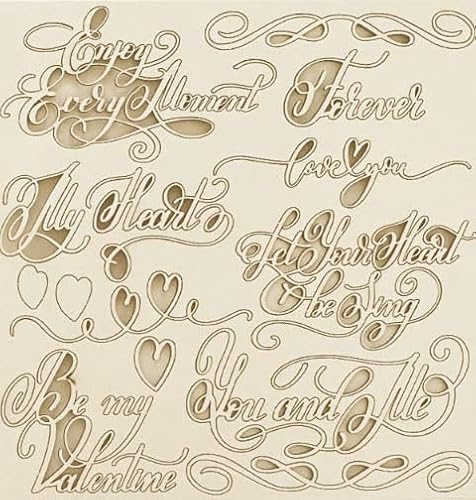 Enjoy
Every Moment
Forever
love you
My Heart
Let Your Heart
be Sing
Be my
Valentine
You and Me